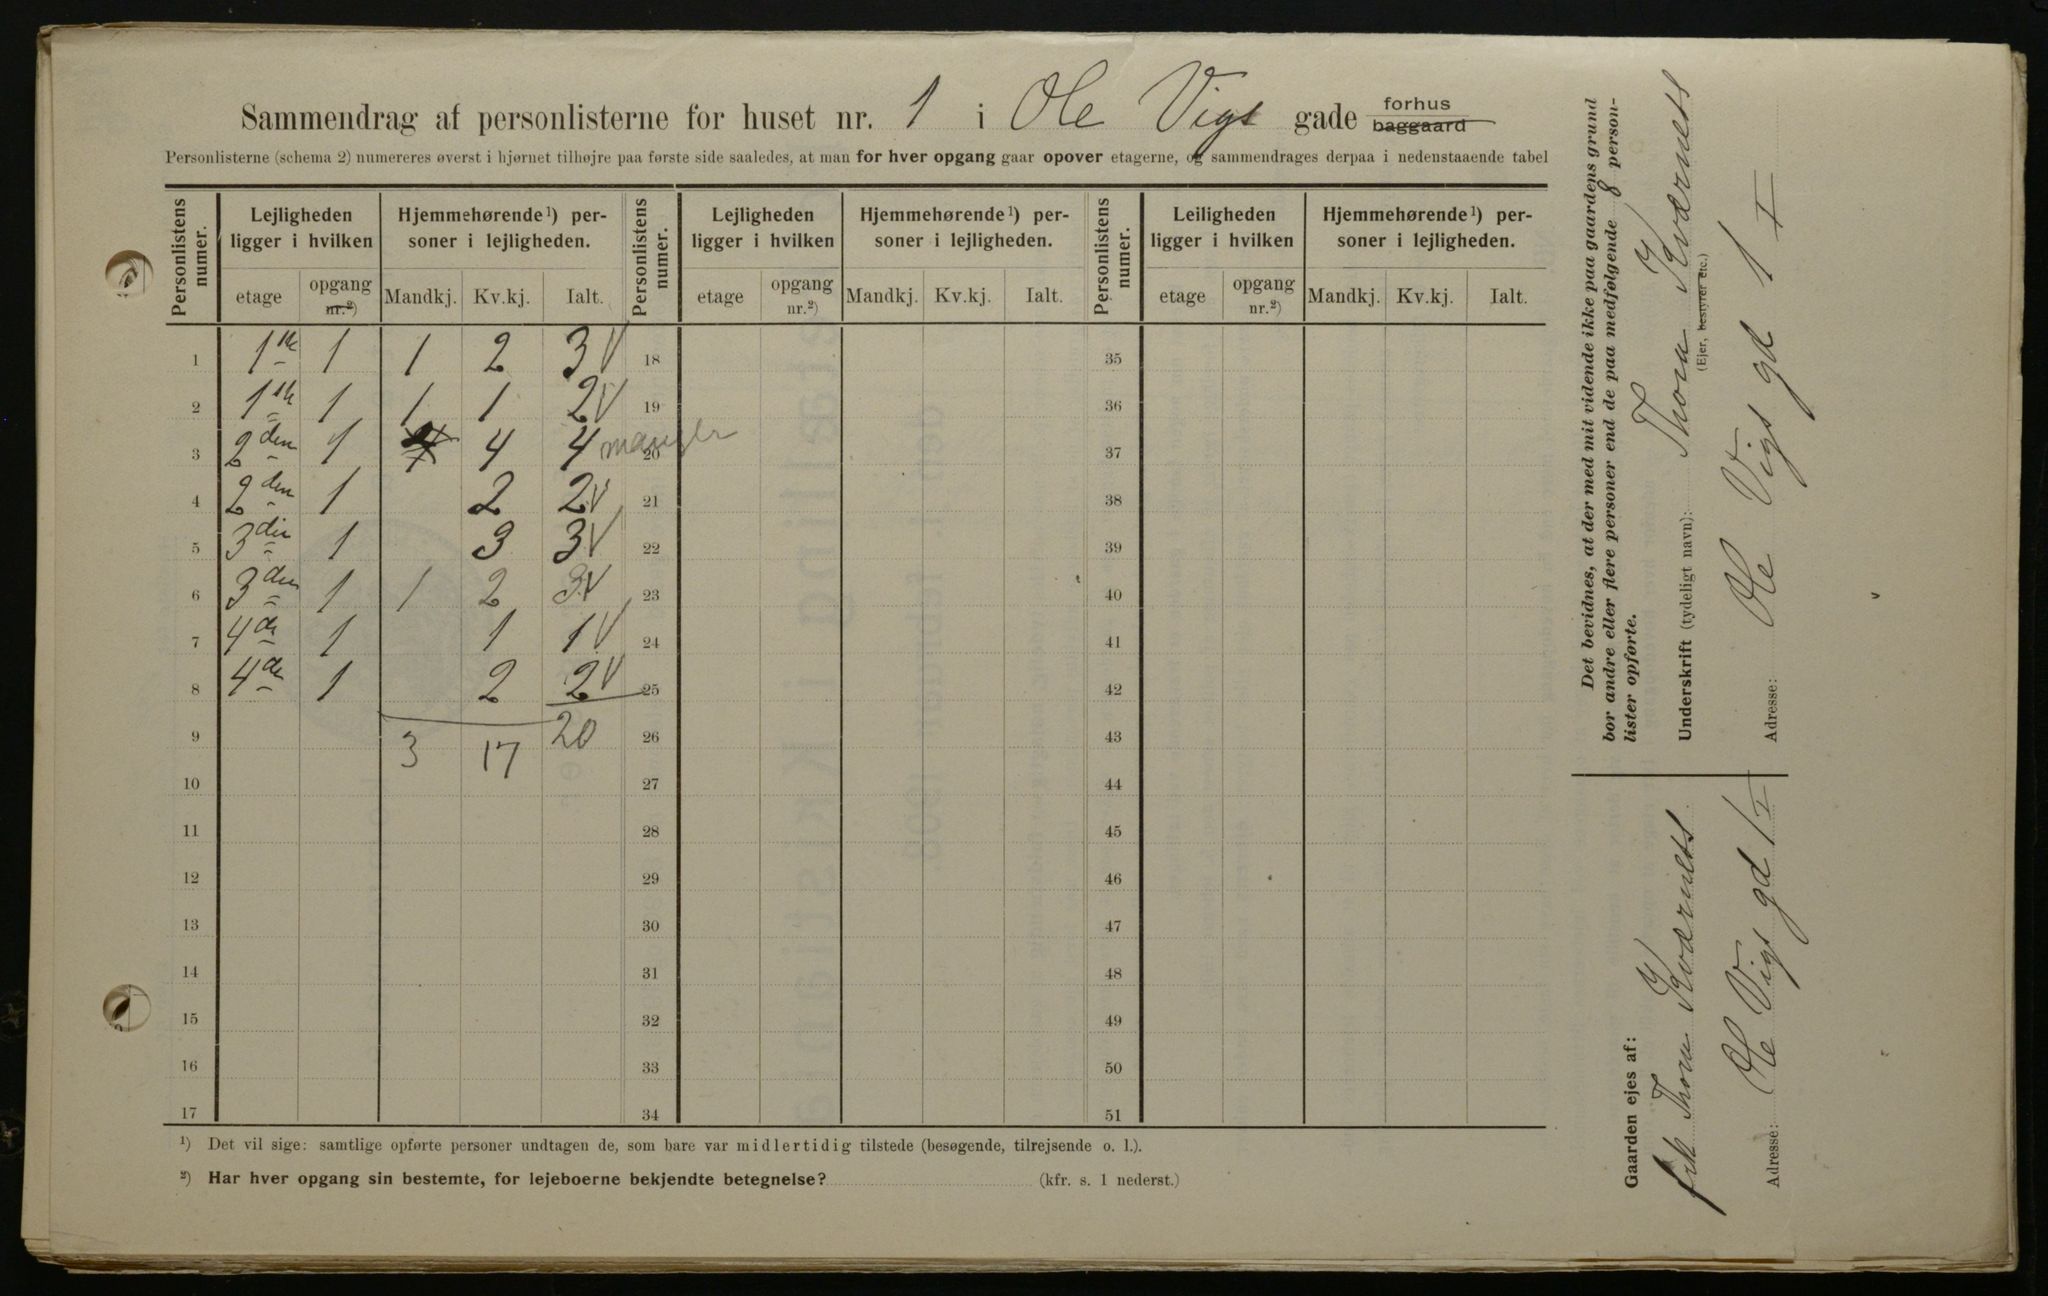 Sammendrag af personlisterne for huset nr. 1 i Ole Vigs gade forhus baggaard
Personlisterne (schema 2) numereres øverst i hjørnet tilhøjre paa første side saaledes, at man for hver opgang gaar opover etagerne, og sammendrages derpaa i nedenstaaende tabel
Personlistens numer. Lejligheden ligger i hvilken Hjemmehørende ¹) personer i lejligheden. Personlistens numer. Lejligheden ligger i hvilken Hjemmehørende ¹) personer i lejligheden. Personlistens numer. Leiligheden ligger i hvilken Hjemmehørende ¹) personer i lejligheden.
etage opgang nr.²) Mandkj. Kv.kj. Ialt. etage opgang nr.²) Mandkj. Kv.kj. Ialt. etage opgang nr.²) Mandkj. Kv.kj. Ialt.
1 1ste 1 1 2 3 V 18 35
2 1ste 1 1 1 2 V 19 36
3 2den 1 4 4 mangler 20 37
4 2den 1 2 2 V 21 38
5 3die 1 3 3 V 22 39
6 3den 1 1 2 3 V 23 40
7 4de 1 1 1 V 24 41
8 4de 1 2 2 V 25 42
9 3 17 20 26 43
10 27 44
11 28 45
12 29 46
13 30 47
14 31 48
15 32 49
16 33 50
17 34 51
¹) Det vil sige: samtlige opførte personer undtagen de, som bare var midlertidig tilstede (besøgende, tilrejsende o. l.).
²) Har hver opgang sin bestemte, for lejeboerne bekjendte betegnelse? (kfr. s. 1 nederst.)
Det bevidnes, at der med mit vidende ikke paa gaardens grund
bor andre eller flere personer end de paa medfølgende 8 person-
lister opførte.
Underskrift (tydeligt navn): Thora Kværness
(Ejer, bestyrer etc.)
Adresse: Ole Vigs gd 1 I
Gaarden ejes af:
frk Thora Kværness
Adresse: Ole Vigs gd 1 I